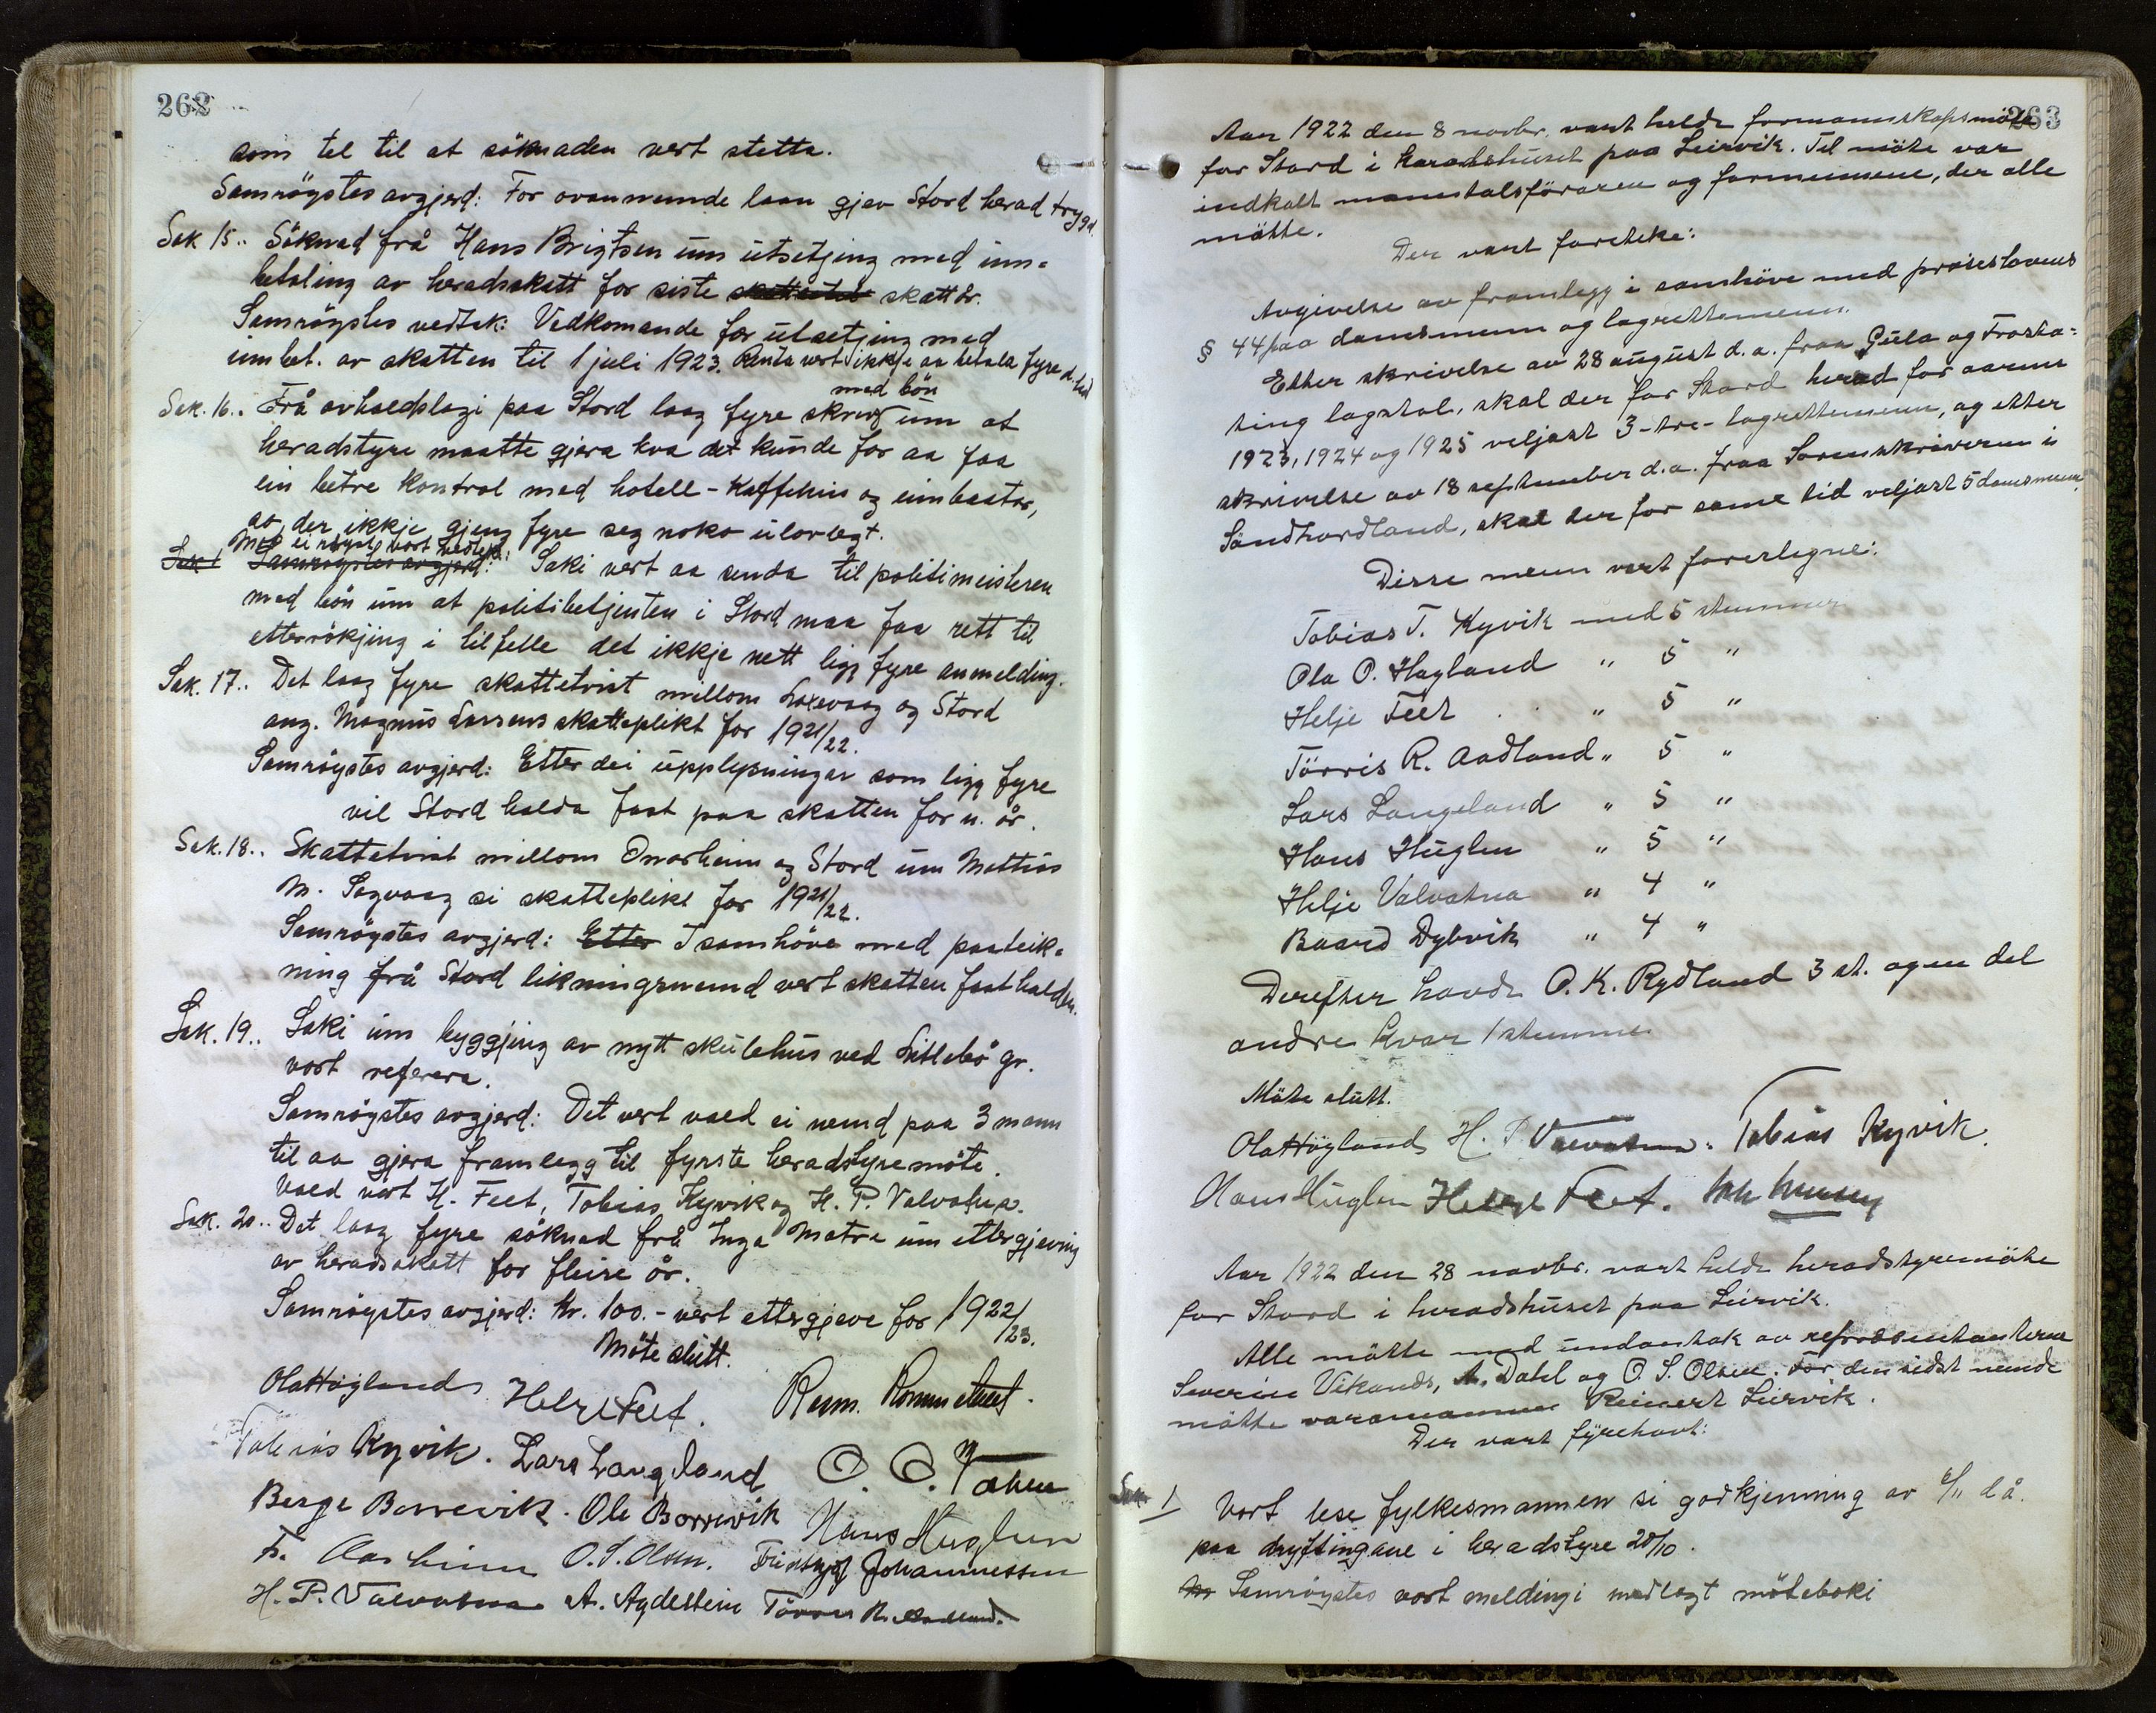 262
som tel til at söknaden vert stetta.
Samröystes avgjerd: For ovannemnde laan gjev Stord herad trygd.
Sak 15.. Söknad frå Hans Brigtsen um utsetjing med inn-
betaling av heradskatt for siste skattår.
Samröystes vedtak: Vedkomande fær utsetjing med
innbet. av skatten til 1 juli 1923. Renta vert ikkje aa betala fyre d. tid
med bön
Sak. 16.. Frå avhaldslagi paa Stord laag fyre skriv um at
heradstyre maatte gjera kva det kunde for aa faa
ein betre kontrol med hotell-kaffehus og einbaator,
so der ikkje gjeng fyre seg noko ulovlegt.
Mot ei röyst vart vedteke:
Sak 1 Samröystes avgjerd: Saki vert aa senda til politimeisteren
med bön um at politibetjenten i Stord maa faa rett til
etterrökjing i tilfelle det ikkje nett ligg fyre anmelding.
Sak. 17.. Det laag fyre skattetvist millom Laxevaag og Stord
ang. Magnus Larsens skatteplikt for 1921/22.
Samröystes avgjerd: Etter dei upplysningar som ligg fyre
vil Stord halda fast paa skatten for n. år.
Sak. 18.. Skattetvist millom Onarheim og Stord um Mattias
M. Sagvaag si skatteplikt for 1921/22.
Samröystes avgjerd: Etter I samhöve med paateik-
ning frå Stord likningsnemnd vert skatten fasthalden.
Sak. 19.. Saki um byggjing av nytt skulehus ved Litlabö gr.
vart referera.
Samröystes avgjerd: Det vert vald ei nemd paa 3 mann
til aa gjera framlegg til fyrste heradstyremöte.
Vald vert H. Feet, Tobias Kyvik og H. P. Valvatna.
Sak. 20.. Det laag fyre söknad frå Inga Matre um ettergjeving
av heradsskatt for fleire år.
Samröystes avgjerd: Kr. 100.- vert ettergjeve for 1922/23.
Möte slutt.
Ola Högland Helge Feet. Rasm. Rommetveit.
Tobias Kyvik. Lars Langeland O. O.
Berge Borrevik. Ole Borrevik Hans Huglen
O. S. Olsen. Fridtjof Johannessen
H. P. Valvatna A. Agdestein Törres R. Aadland.
263
Aar 1922 den 8 novbr. vart halde formannskapsmöte
for Stord i heradshuset paa Leirvik. Til möte var
indkalt manntalsföraren og formennene, der alle
mötte.
Der vart foreteke:
Avgivelse av framlegg i samhöve med proseslovens
§ 44 paa domsmenn og lagrettemenn.
Etter skrivelse av 28 august d.a. fraa Gula og Frosta-
ting lagstol, skal der for Stord herad for aarene
1923, 1924 og 1925 veljast 3-tre-lagrettemenn, og etter
skrivelse av 18 september d.a. fraa Sorenskriveren i
Sundhordland, skal der for same tid veljast 5 domsmenn.
Disse menn vart foreslegne:
Tobias T. Kyvik med 5 stemmer
Ola O. Högland " 5 "
Helje Feet " 5 "
Törris R. Aadland " 5 "
Lars Langeland " 5 "
Hans Huglen " 5 "
Helje Valvatna " 4 "
Baard Dybvik " 4 "
Derefter havde O. K. Rydland 3 st. og en del
andre kvar 1 stemme
Möte slutt.
Ola Högland H. P. Valvatna. Tobias Kyvik.
Hans Huglen Helge Feet.
Aar 1922 den 28 novbr. vart halde heradstyremöte
for Stord i heradshuset paa Leirvik.
Alle mötte med undantak av representanterne
Severin Vikanes, A. Dahl og O. S. Olsen. For den sidst nemde
mötte varamannen Reinert Leirvik.
Der vart fyrehavt:
Sak 1/ Vart lese fylkesmannen si godkjenning av 6/11 då.
paa dryftingane i heradstyre 20/10.
Samröystes vart meldingi medlagt möteboki